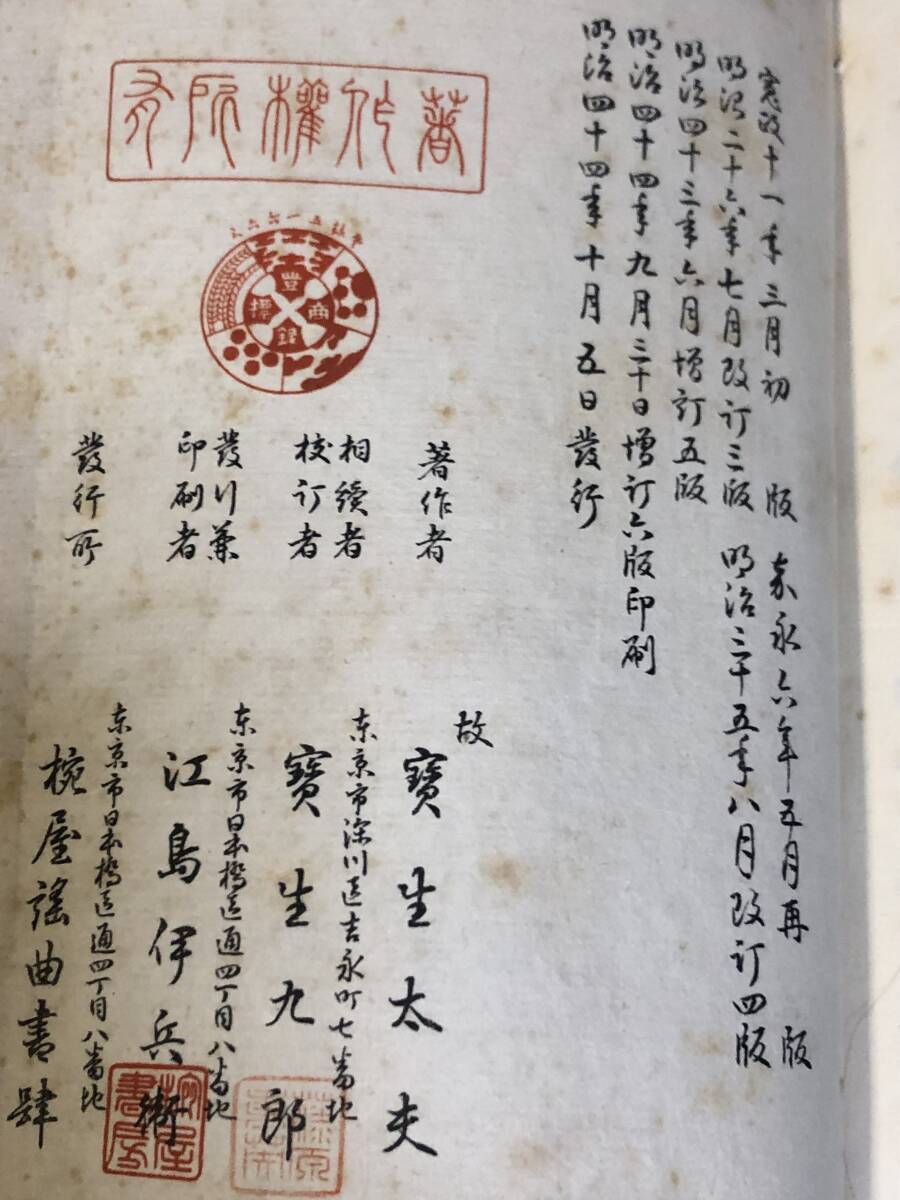 寛政十一年三月初版 嘉永六年五月再版
明治二十六年七月改訂三版 明治三十五年八月改訂四版
明治四十三年六月増訂五版
明治四十四年九月三十日増訂六版印刷
明治四十四年十月五日發行
著作權所有
豐
商
標
録
著作者 故 寶生太夫
東京市深川區吉永町七番地
相續者
校訂者 寶生九郎
東京市日本橋區通四丁目八番地
發行兼
印刷者 江島伊兵衛
東京市日本橋區通四丁目八番地
發行所 椀屋謠曲書肆
椀屋
書房
藤原